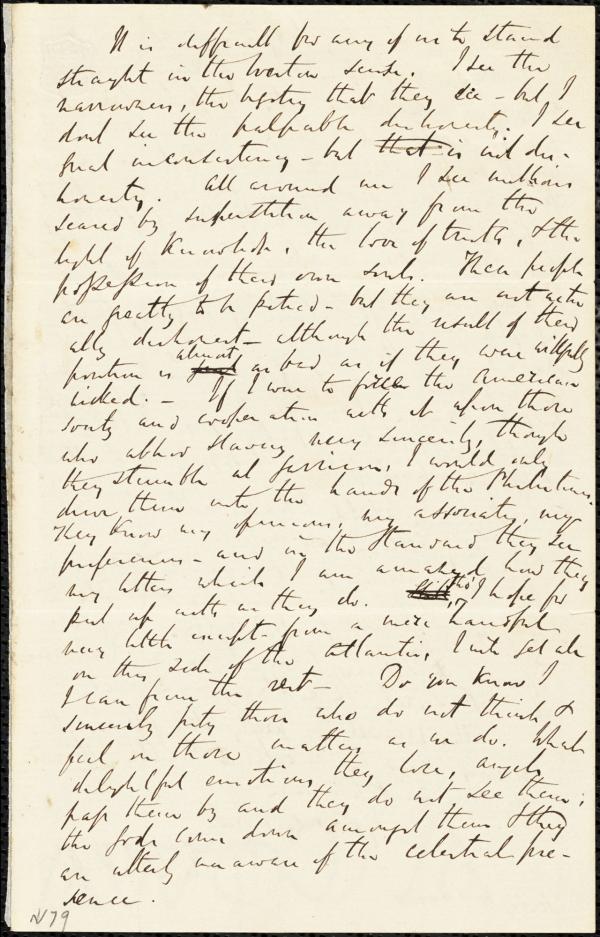 It is difficult for any of us to stand
straight in the Boston sense. I see the
narrowness, the bigotry that they see - but I
dont see the palpable dishonesty. I see
great inconsistency - but that is not dis-
honesty. All around me I see millions
scared by superstition away from the
light of knowledge, the love of truth, & the
possession of their own souls. These people
are greatly to be pitied - but they are not actu
ally dishonest - although the result of their
position is almost as bad as if they were willfully
wicked. - If I were to force the American
Society and cooperation with it upon those
who abhor slavery very sincerely, though
they stumble at Garrison, I would only
drive them into the hands of the Philistines.
They know my opinions, my associates, my
preferences - and in the Standard they see
my letters which I am amazed how they
put up with as they do. tho' I hope for
very little except from a mere handful
on this side of the Atlantic, I will get all
I can from the rest - Do you know I
sincerely pity those who do not think &
feel on those matters as we do. What
delightful emotions they lose, angels
pass them by and they do not see them;
the gods come down amongst them & they
are utterly unaware of the celestial pre-
sence.
N79